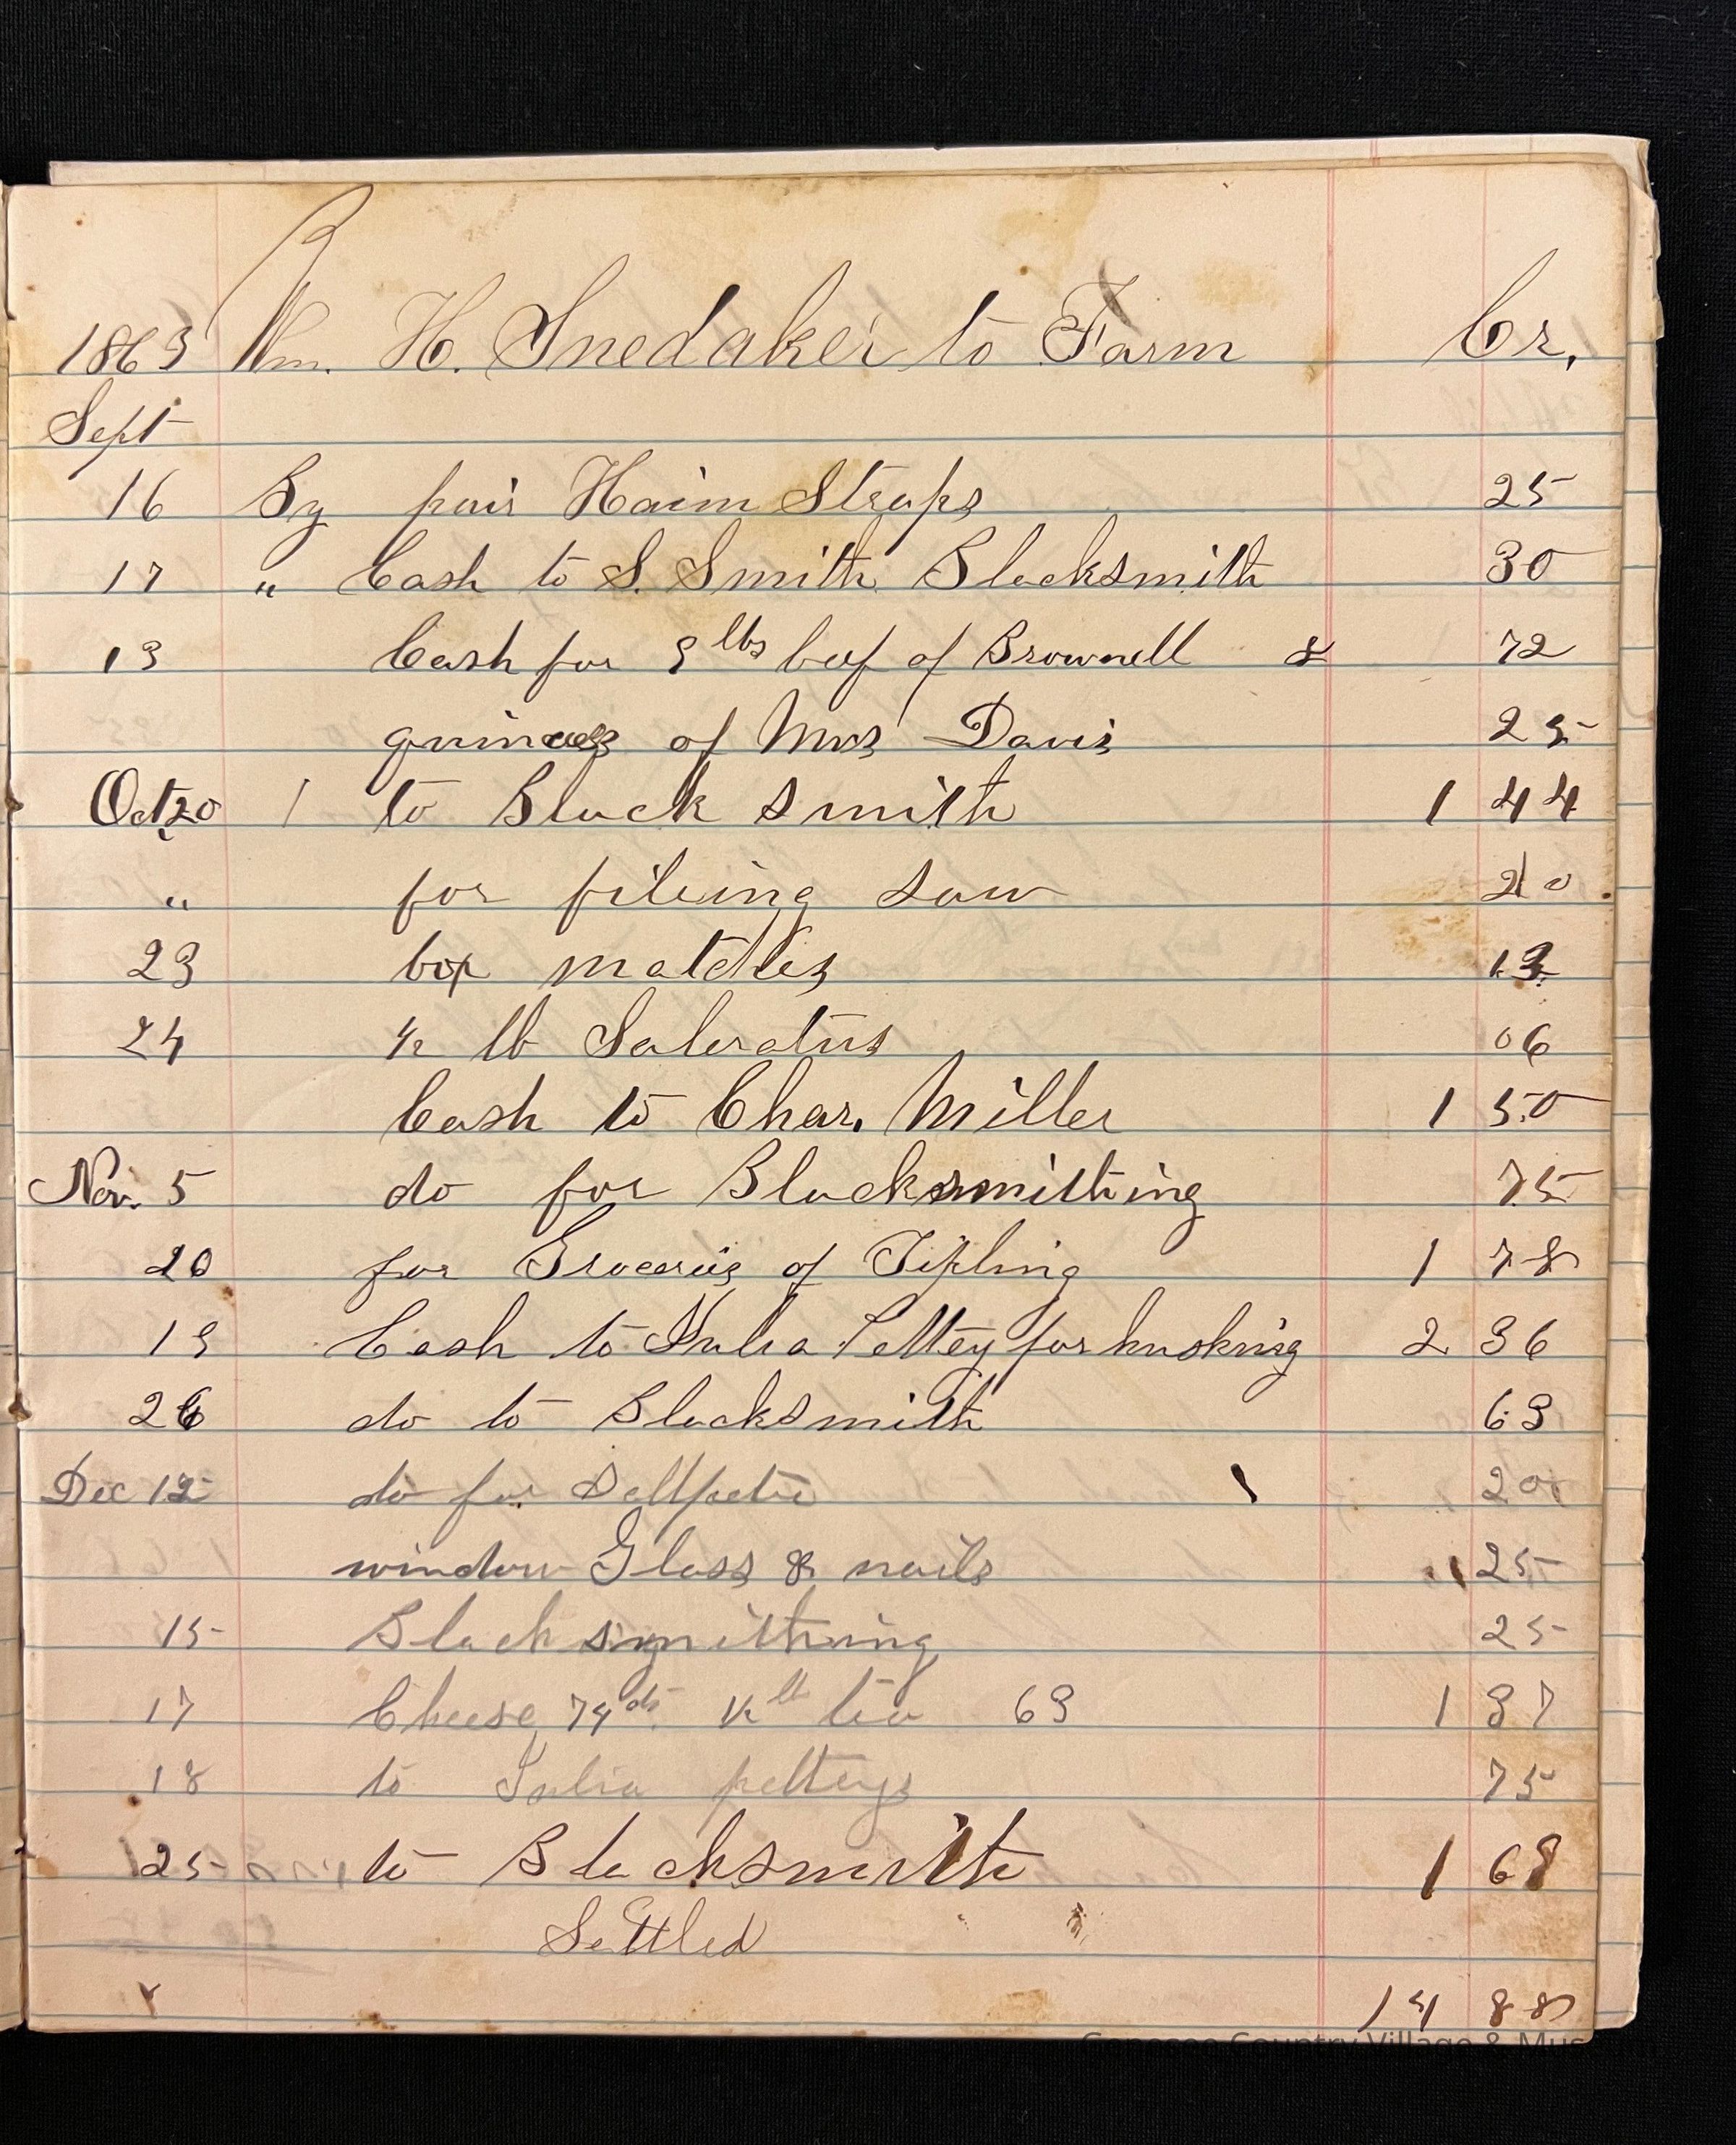 1863 Wm. H. Snedaker to Farm Cr.
Sept
16 By pair Haim Straps 25
17 " Cash to S. Smith Blacksmith 30
19 Cash for 9 lbs beef of Brownell 8 72
quinces of Mrs Davis 25
Oct 20 to Black smith 1 44
" for fileing saw 20
23 box matches 13
24 1/2 lb Saleratus 06
Cash to Char. Miller 1 50
Nov. 5 do for Blacksmithing 75
20 for Groceries of Tipling 1 78
19 Cash to Julia Pettey for husking 2 36
26 do to Blacksmith 63
Dec 12 do for Saltpetre 20
window Glass & nails 25
15 Blacksmithing 25
17 Cheese 74 cts 1/2 lb tea 63 1 37
18 to Julia petteys 75
25 to Blacksmith 1 68
Settled
14 88